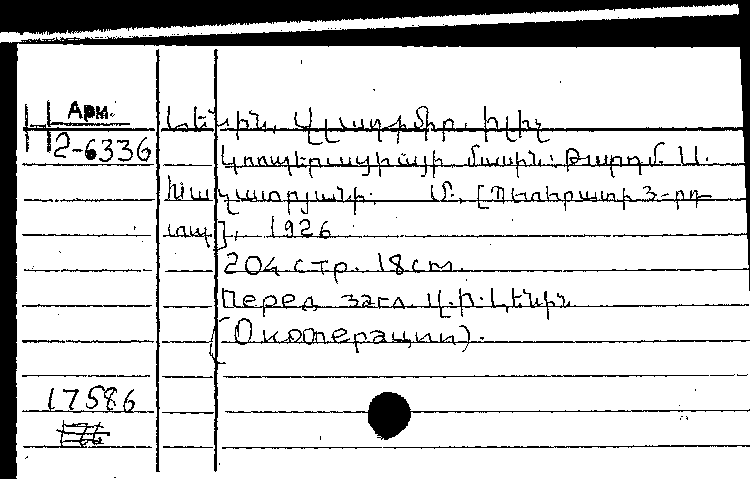 Арм.
2-6336
Լենին, Վլադիմիր Իլիչ
Կոոպերացիայի մասին: Թարգմ. Ա.
Խաչատրյանի. Մ., [Պետհրատի 3-րդ
տպ], 1926
204 стр. 18 cm.
Перед загл. Վ.Ի. Լենին
(О кооперации).
17586